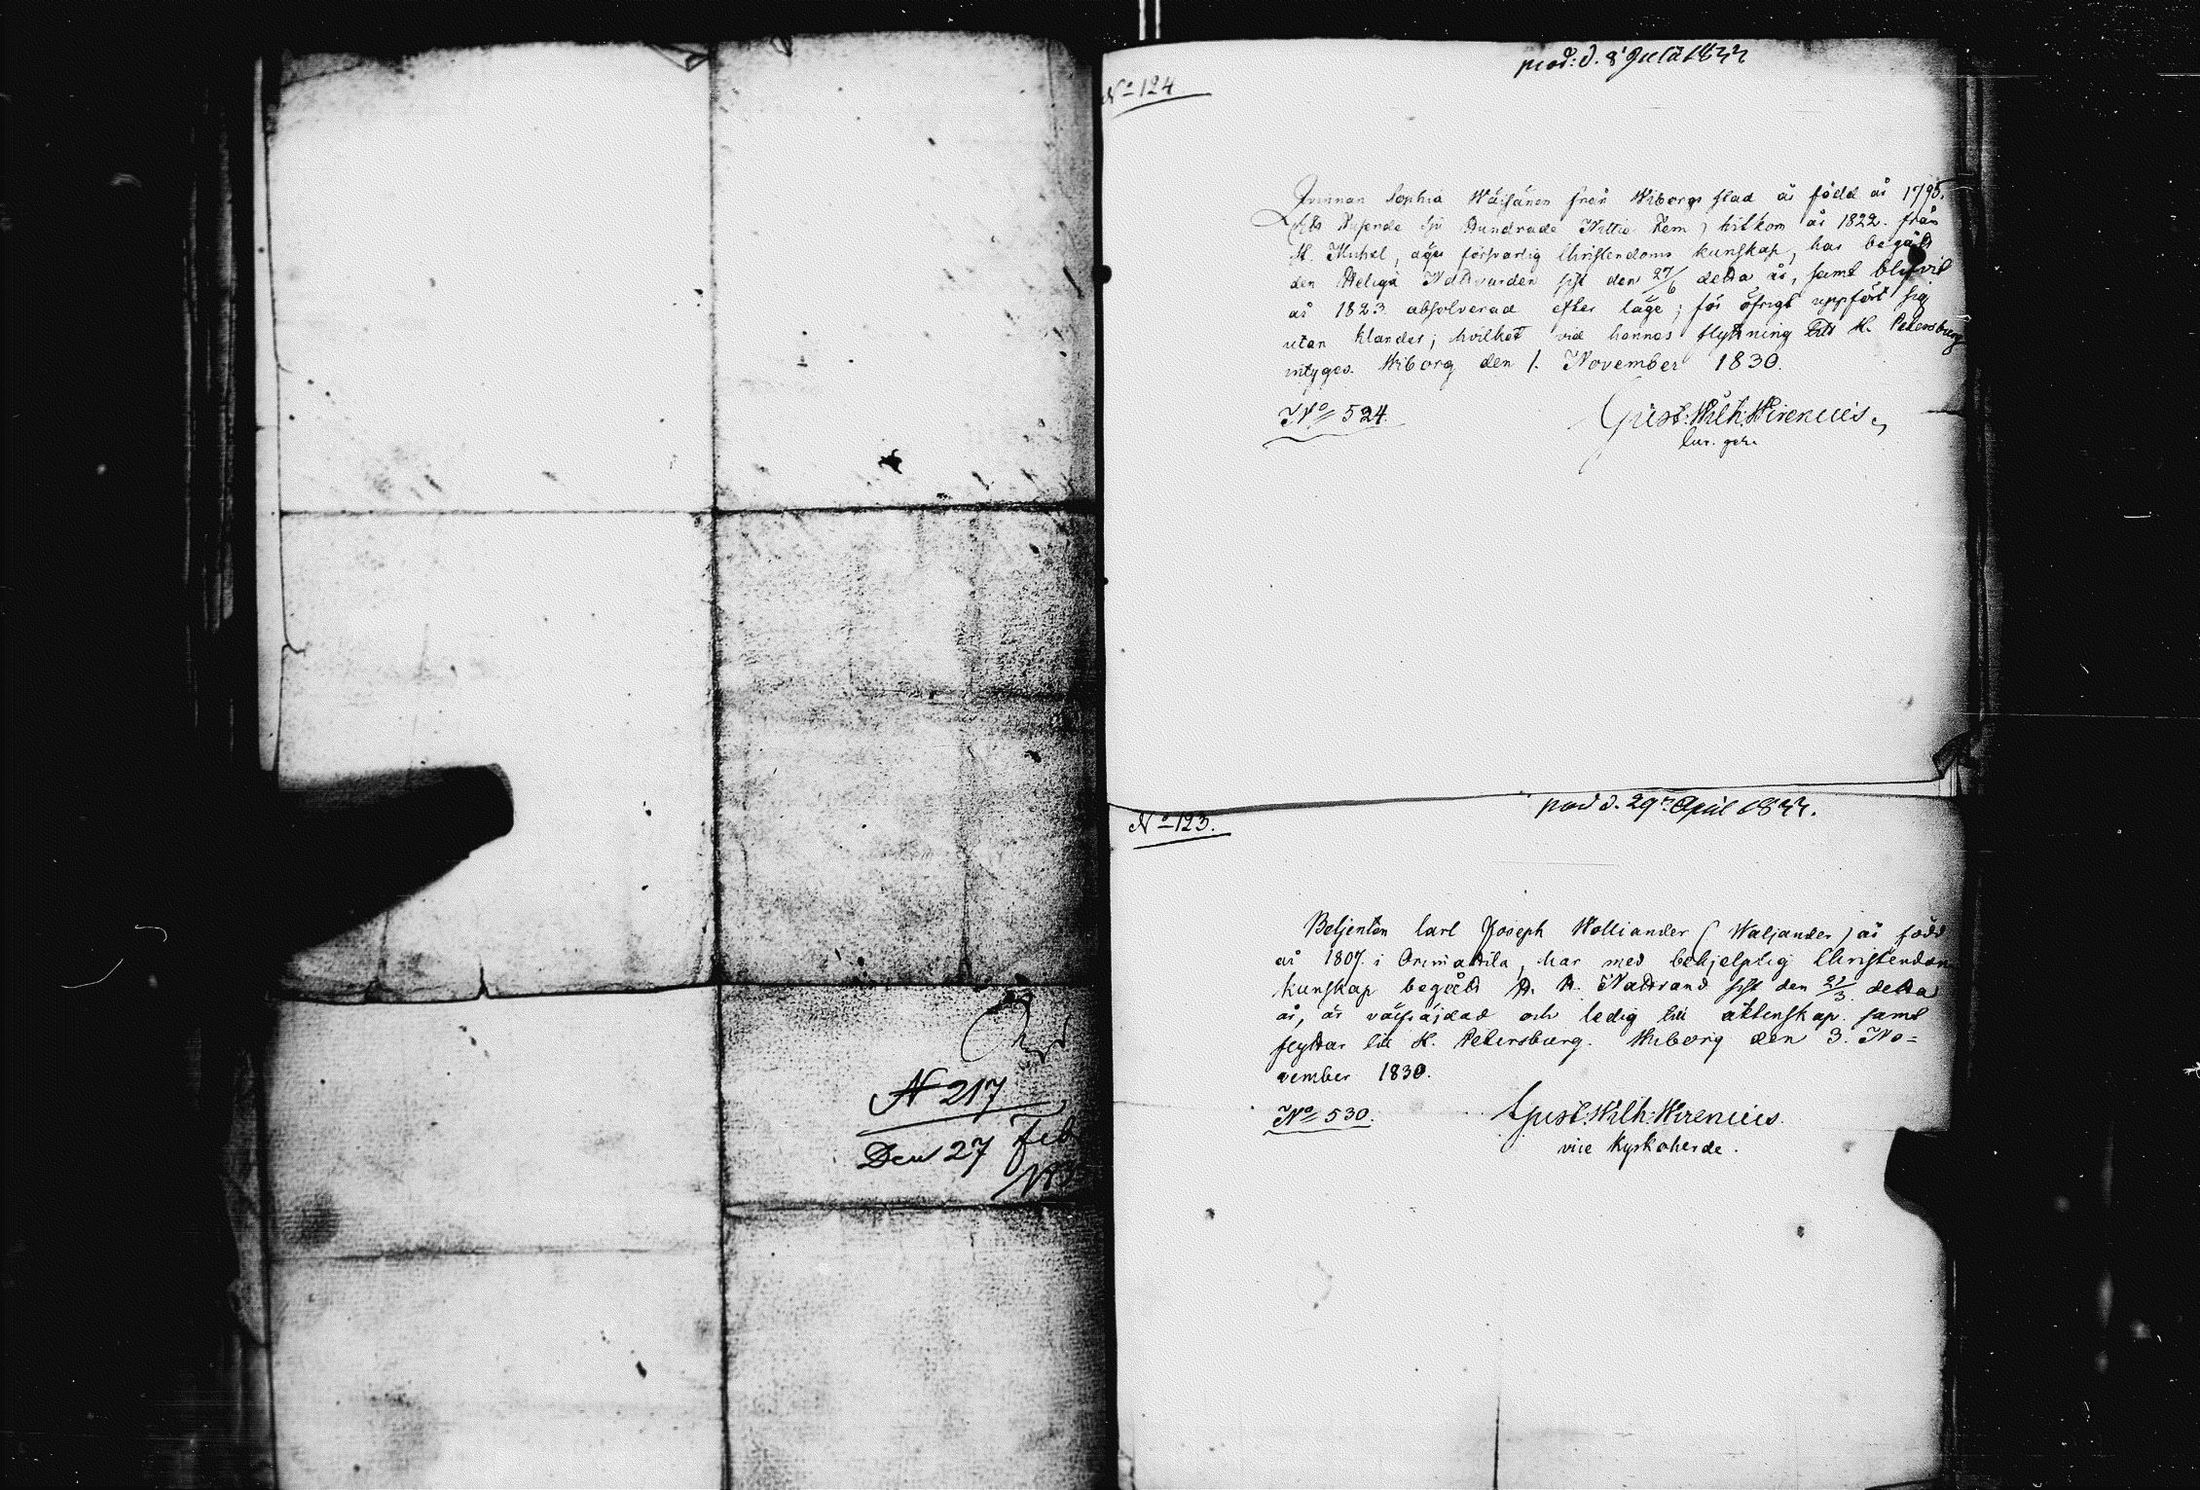 N 217
Den 27 Feb
No 124
prod: d. 8 Julii 1833
Qvinnan Sophia Wäisänen från Wiborgs stad är född år 1795.
(Ett Tusende sju Hundrade Nittio Fem) hitkom år 1822 från
St. Michel, äger försvarlig Christendoms kunskap, har begått
den Heliga Nattvarden sist den 27/6 detta år, samt blifvit
år 1823 absolverad efter läge; för öfrigt uppfört sig
utan klander; hvilket vid hennes flyttning till St. Petersburg
intyges. Wiborg den 1. November 1830.
No 524.
Gust: Wilh: Wirenius
Cur. ger.
No 123.
prod d. 29 April 1833.
Betjenten Carl Joseph Wolliander (Waljander) är född
år 1807 i Orimattila, har med behjelplig Christendoms
kunskap begått H. H. Nattvard sist den 21/3 detta
år, är och ledig till äktenskap samt
flyttar till St. Petersburg. Wiborg den 3. No=
vember 1830.
No 530.
Gust: Wilh: Wirenius.
vice Kyrkoherde.